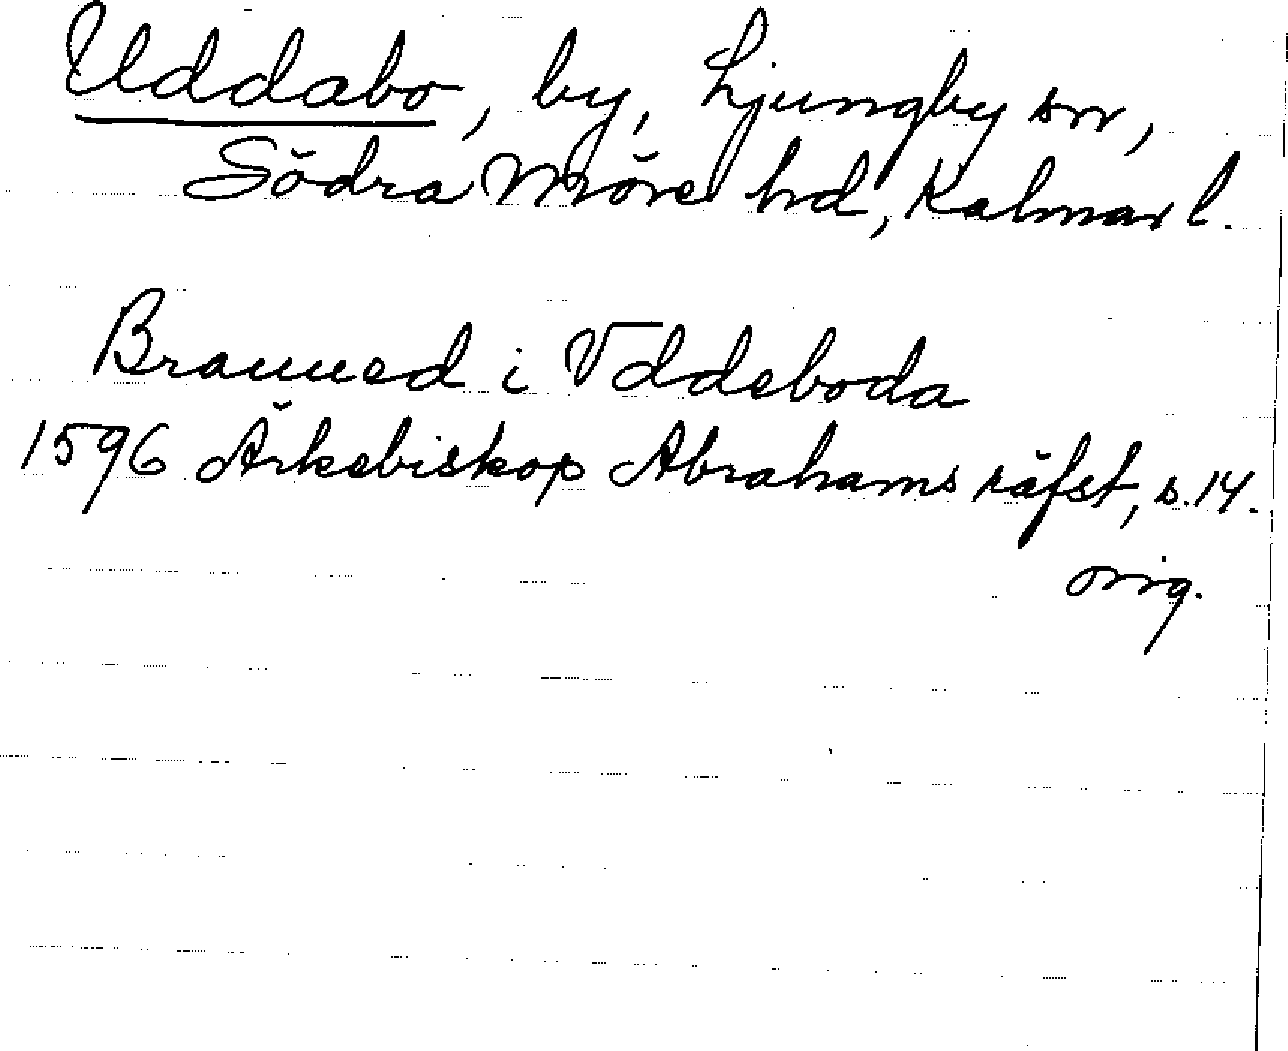 Uddabo, by, Ljungby sn,
Södra Möre hd, Kalmar l.
i Vddeboda
1596 Ärkebiskop Abrahams räfst, s. 14.
orig.